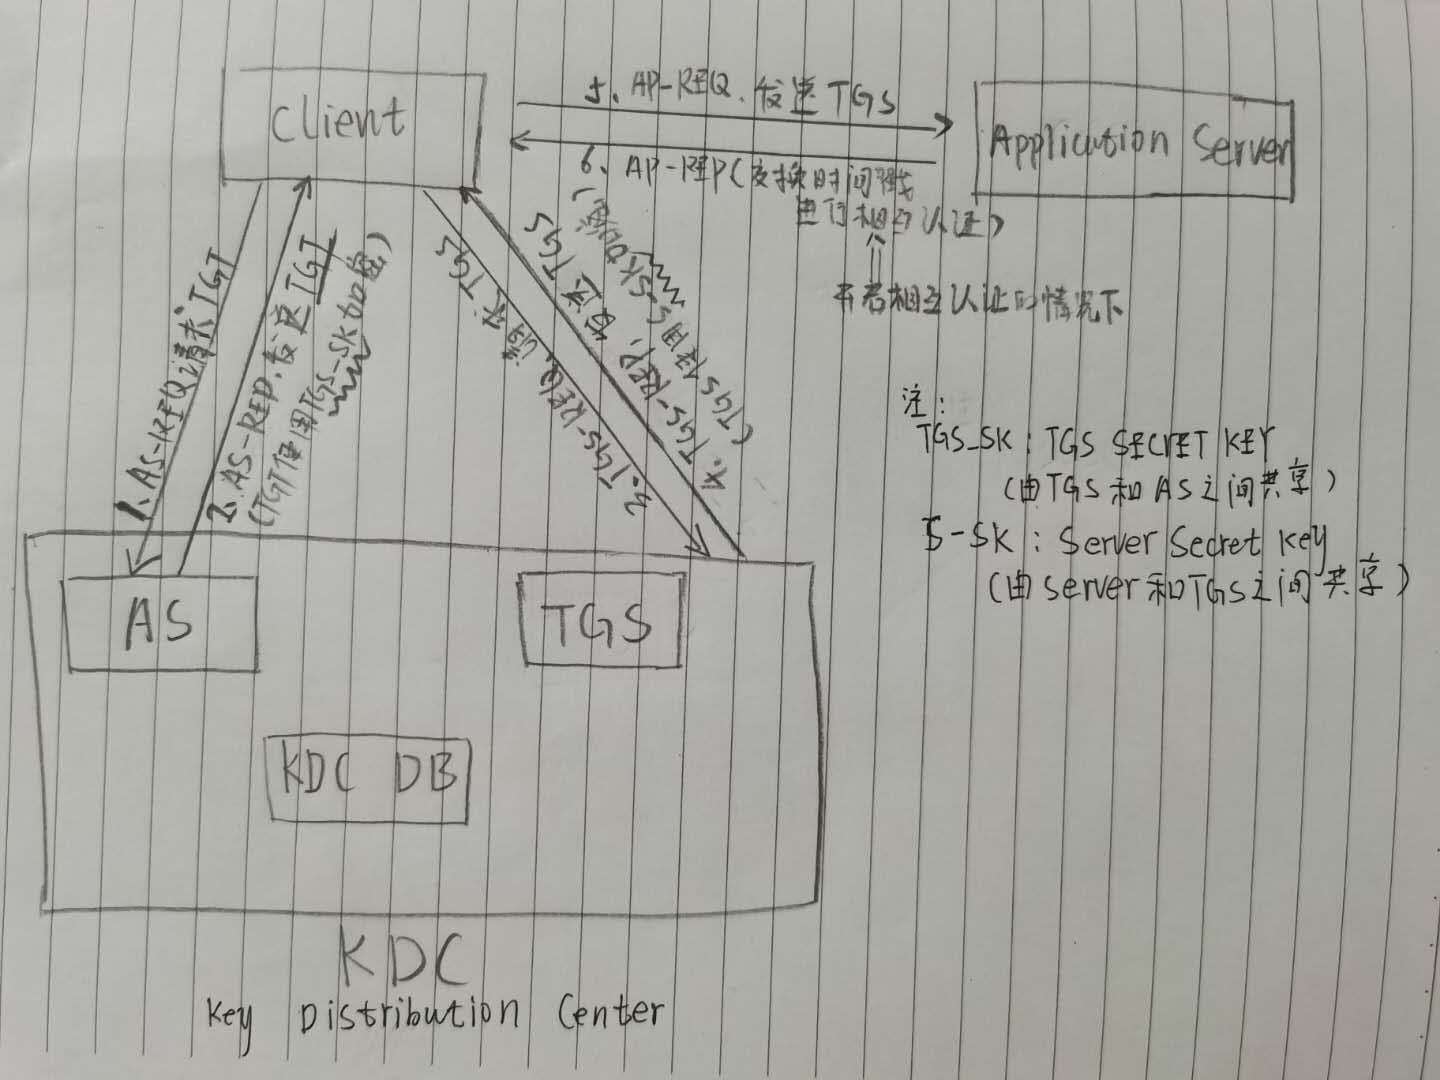 Client
5、AP-REQ.发送TGS
Application Server
6、AP-REP(交换时间戳
进行相互认证)
若若相互认证的情况下
1、AS-REQ请求TGT
2、AS-REP.发送TGT
(TGT使用TGS_SK加密)
3.TGS-REQ.请求TGS
4.TGS-REP.发送TGS
(TGS使用S-SK加密)
注:
TGS_SK:TGS SECRET KEY
(由TGS和AS之间共享)
S-SK:Server Secret Key
(由Server和TGS之间共享)
AS
TGS
KDC DB
KDC
Key Distribution Center